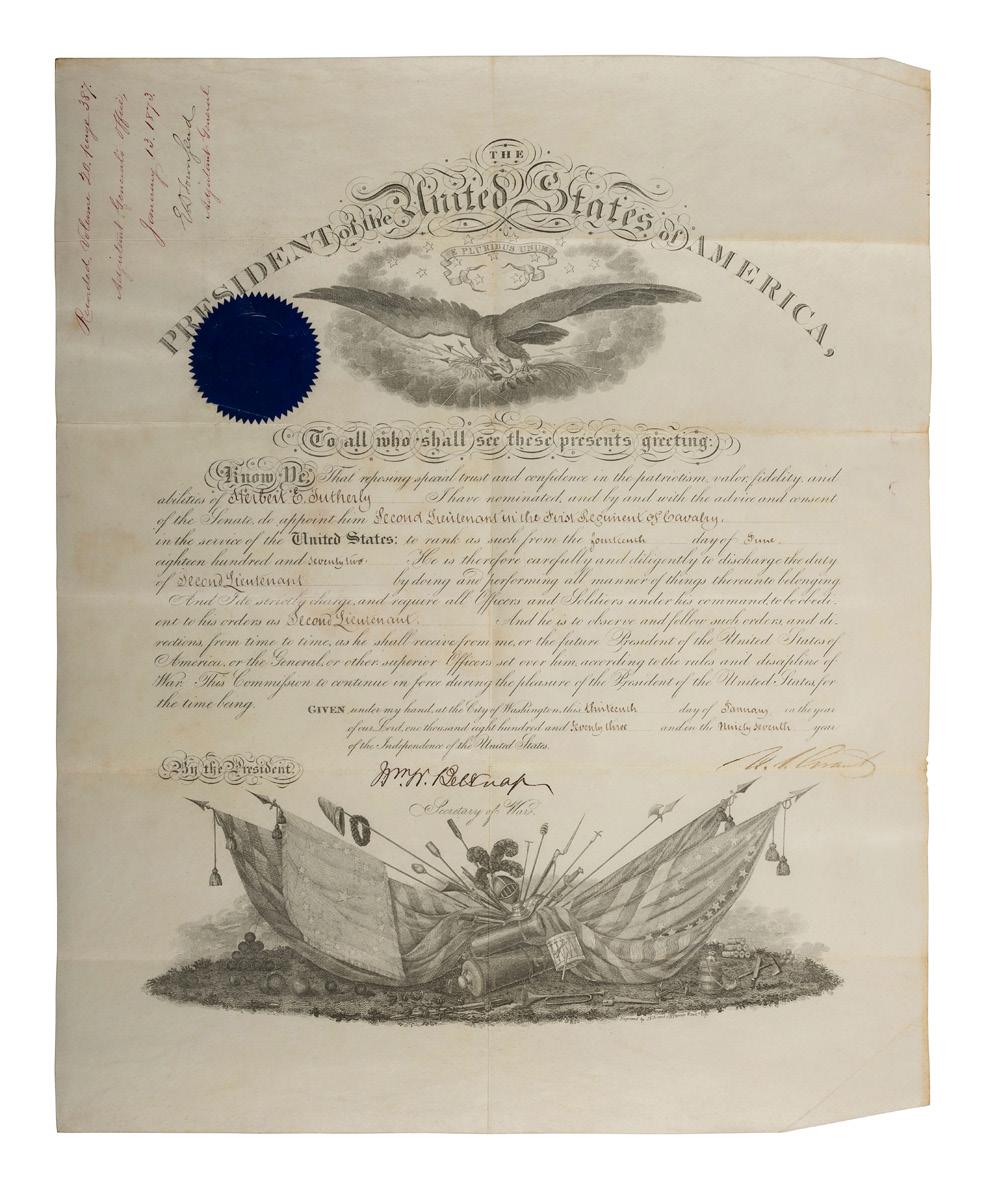 Recorded, Volume 20, page 387.
Adjutant General's Office,
January 13. 1873.
E D Townsend
Adjutant General.
THE
PRESIDENT of the United States of AMERICA,
E PLURIBUS UNUM
To all who shall see these presents greeting:
Know Ye, That reposing special trust and confidence in the patriotism, valor, fidelity, and
abilities of Herbert E. Tutherly I have nominated, and by and with the advice and consent
of the Senate, do appoint him Second Lieutenant in the First Regiment of Cavalry.
in the service of the United States: to rank as such from the fourteenth day of June
eighteen hundred and seventy two. He is therefore carefully and diligently to discharge the duty
of Second Lieutenant by doing and performing all manner of things thereunto belonging.
And I do strictly charge, and require all Officers and Soldiers under his command, to be obedi-
ent to his orders as Second Lieutenant. And he is to observe and follow such orders, and di-
rections, from time to time, as he shall receive from me, or the future President of the United States of
America, or the General, or other superior Officers set over him, according to the rules and discipline of
War. This Commission to continue in force during the pleasure of the President of the United States, for
the time being.
GIVEN under my hand, at the City of Washington, this thirteenth day of January in the year
of our Lord, one thousand eight hundred and seventy three and in the Ninety seventh year
of the Independence of the United States.
By the President.
U. S. Grant
Wm W. Belknap
Secretary of War.
Engraved by